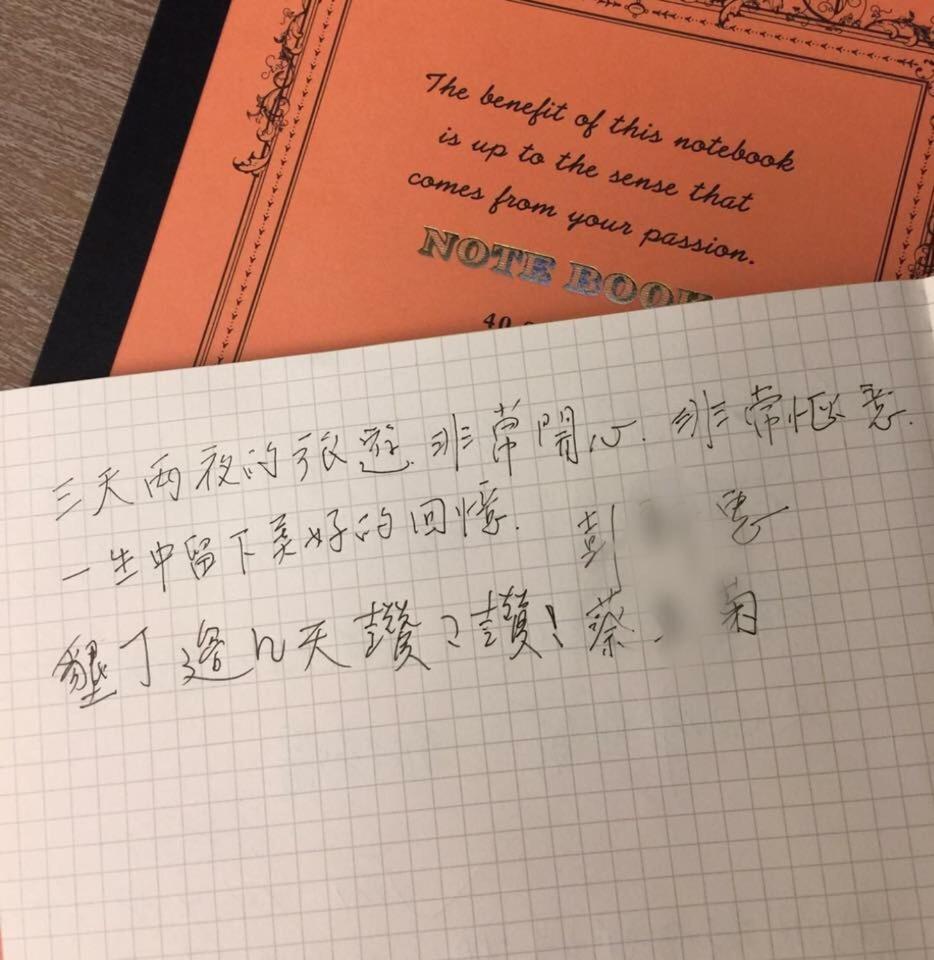 The benefit of this notebook
is up to the sense that
comes from your passion.
NOTE BOOK
40
三天兩夜的旅遊.非常開心.非常愜意.
一生中留下美好的回憶. 彭
墾丁這几天讚讚! 蔡 菊